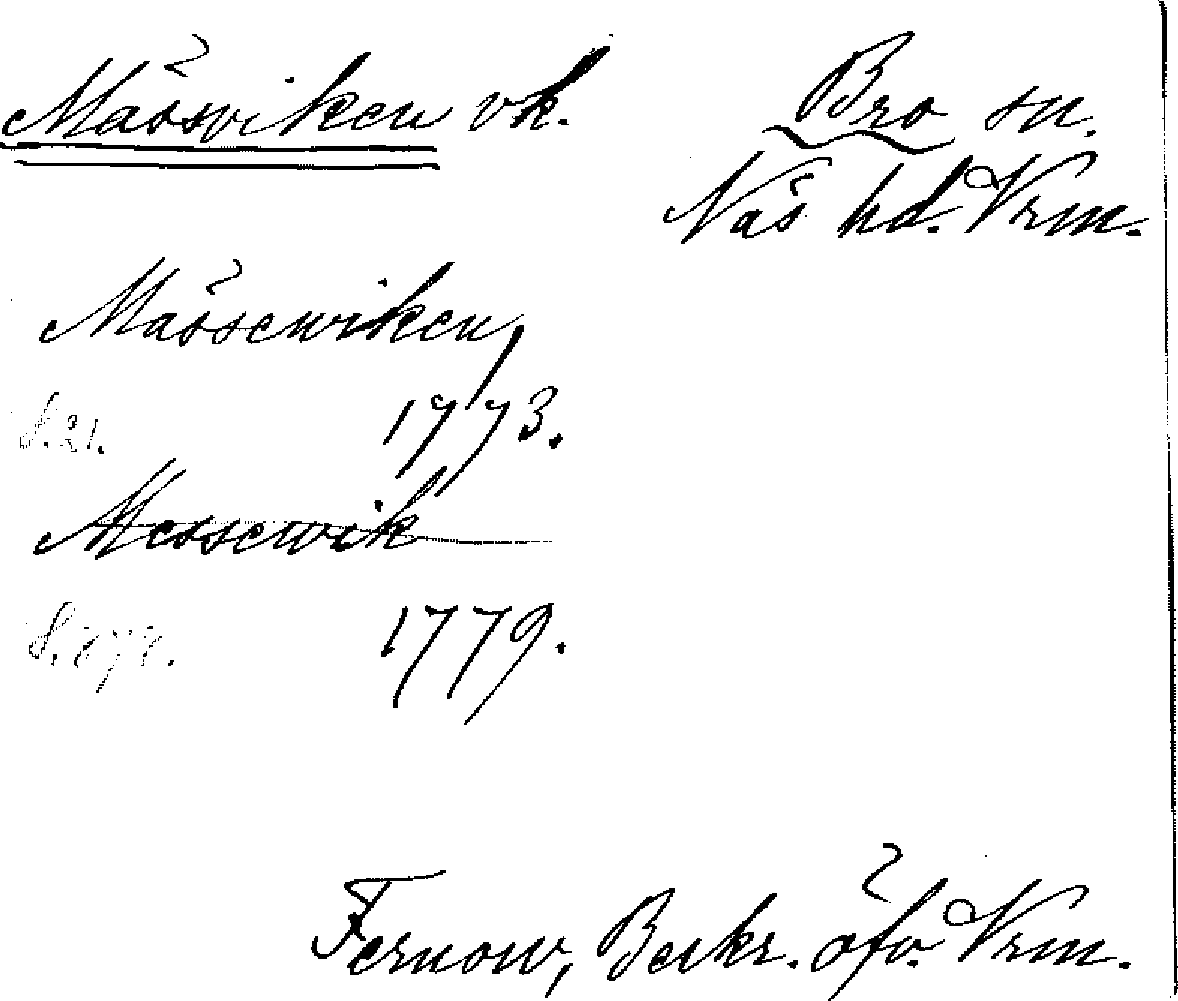 Mäsviken vk. Bro sn.
Näs hd. Vrm.
Mässewiken,
S. 21. 1773.
Messewik
1779.
Fernow, Beskr. öfv. Vrm.